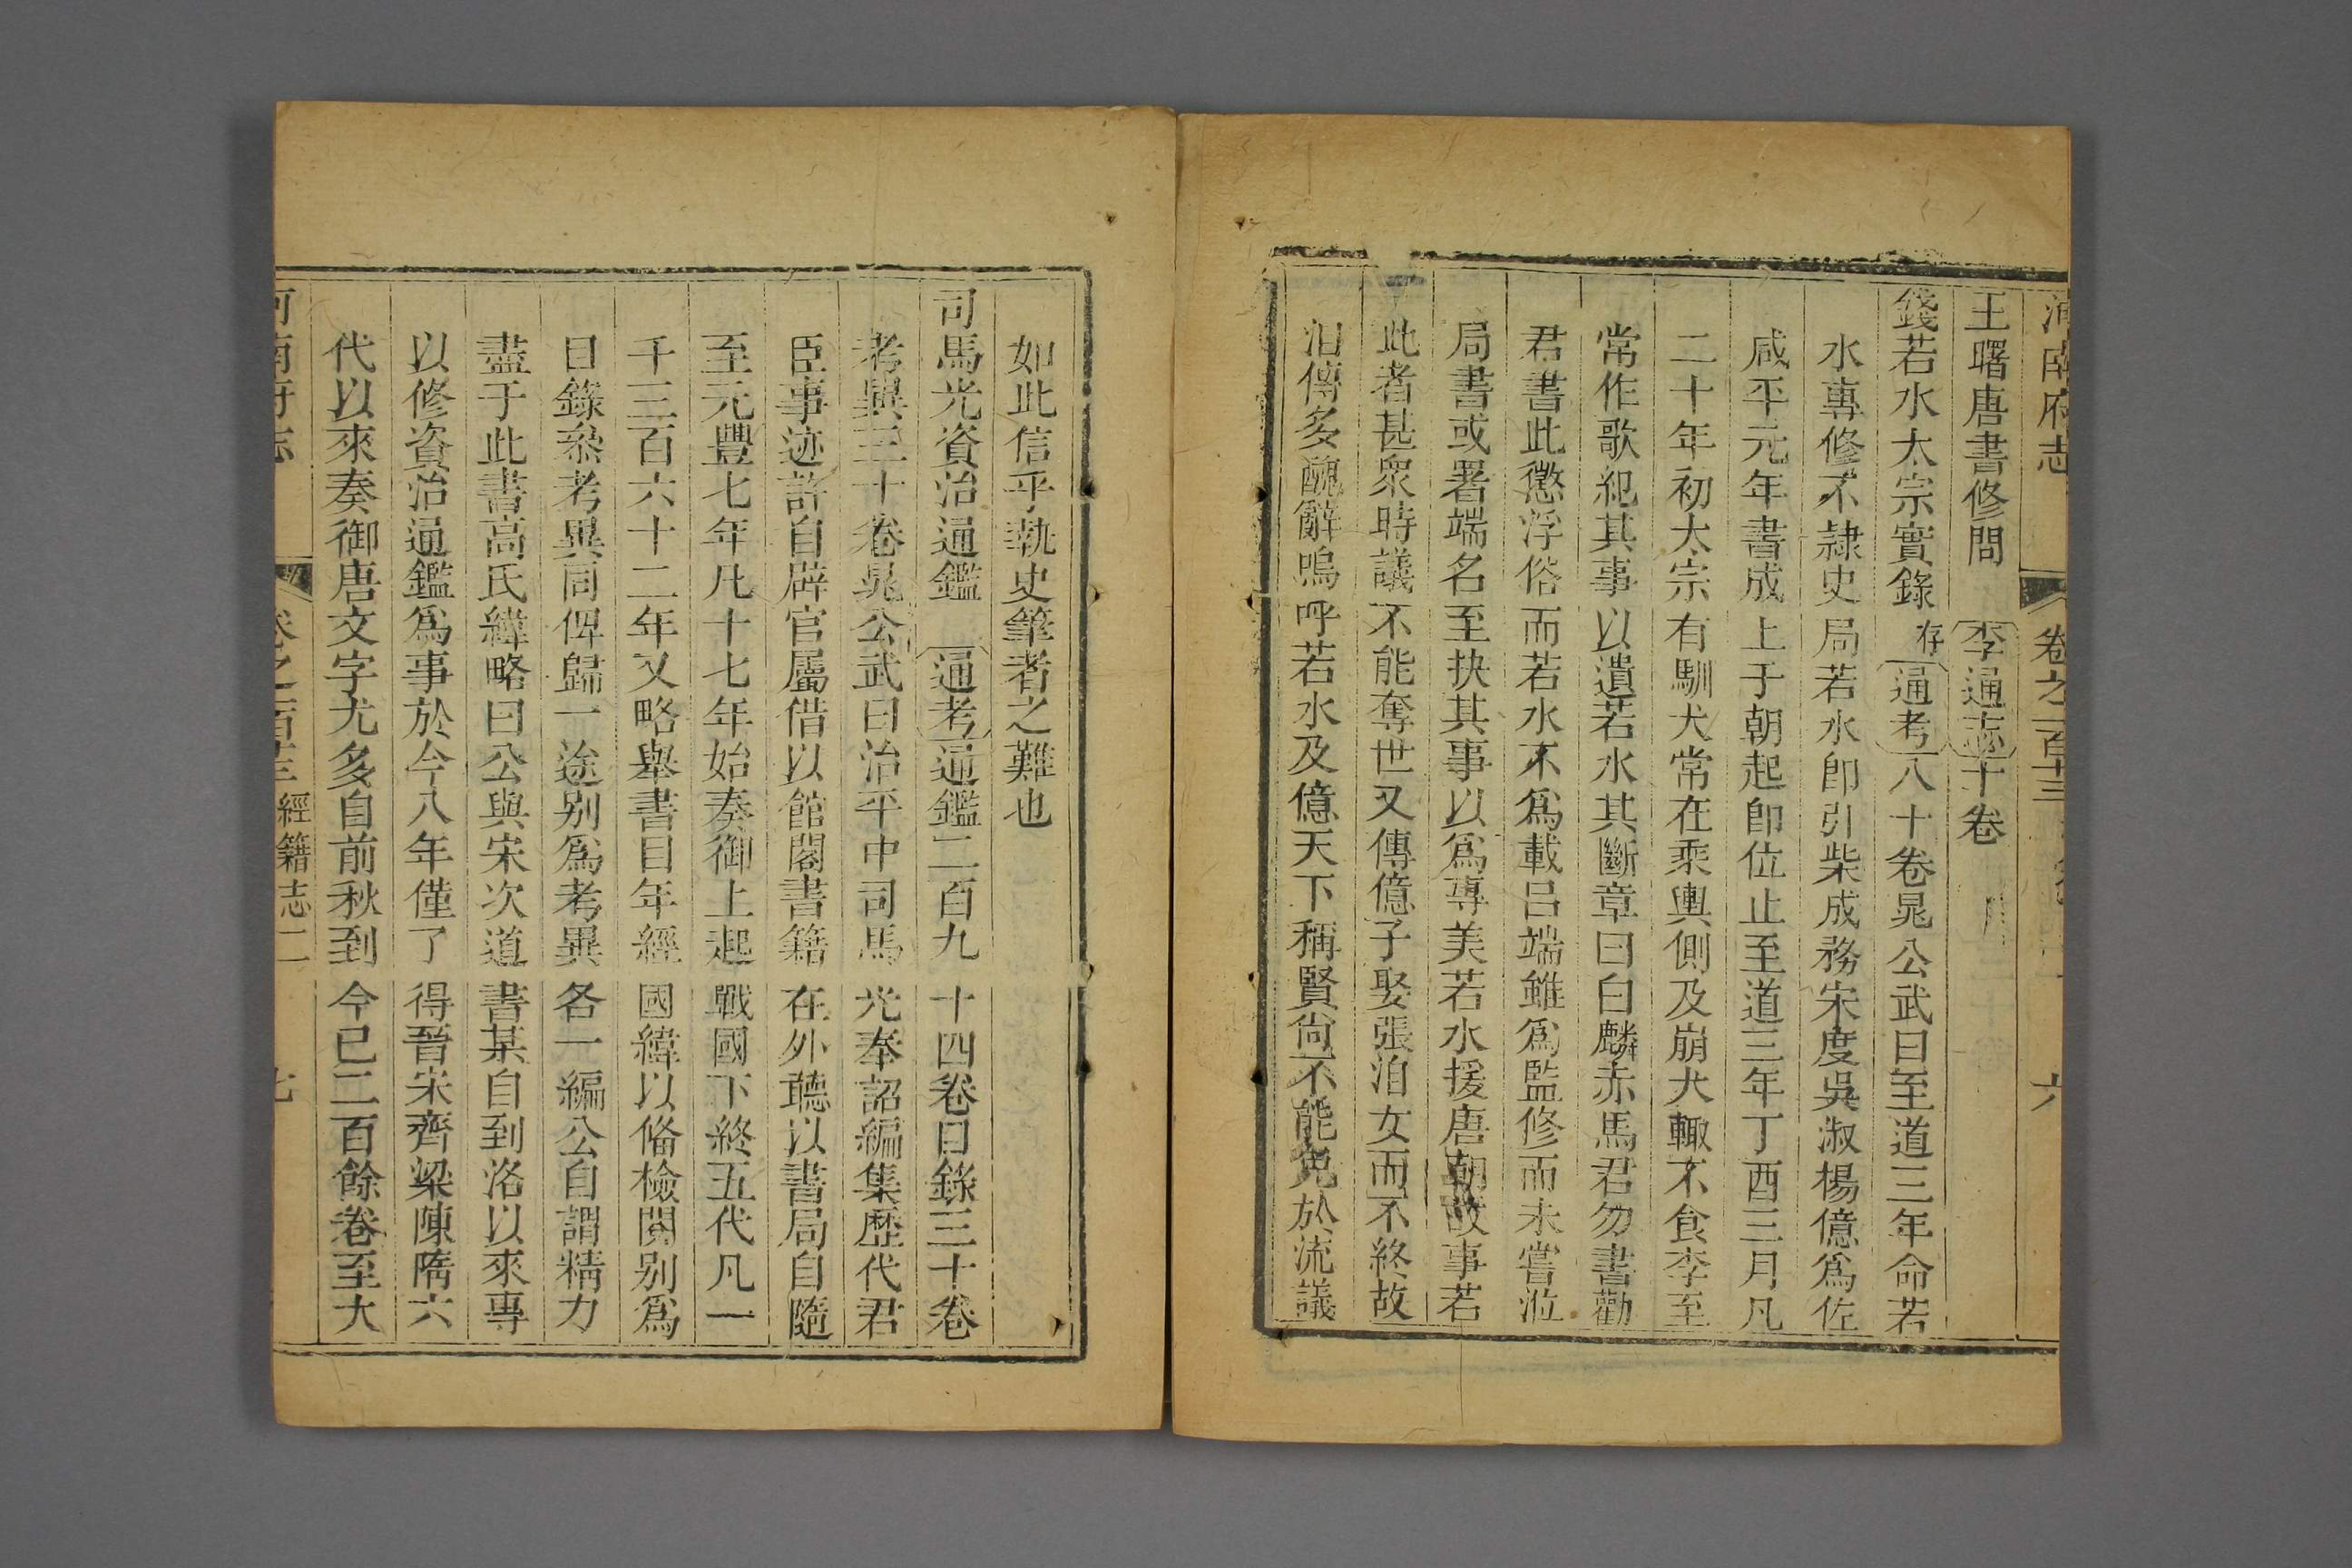 河南府志 卷之一百十三 六
王曙唐書修問 李通志十卷
錢若水太宗實錄 存 通考八十卷晁公武曰至道三年命若
水專修不隷史局若水即引柴成務宋度吳淑楊億爲佐
咸平元年書成上于朝起即位止至道三年丁酉三月凡
二十年初太宗有馴犬常在乘輿側及崩犬輙不食李至
常作歌紀其事以遺若水其斷章曰白麟赤馬君勿書勸
君書此懲浮俗而若水不爲載呂端雖爲監修而未嘗涖
局書或署端名至抉其事以爲專美若水援唐朝故事若
此者甚衆時議不能奪世又傳億子娶張洎女而不終故
洎傳多醜辭嗚呼若水及億天下稱賢尙不能免於流議
如此信乎執史筆者之難也
司馬光資治通鑑 通考通鑑二百九十四卷目錄三十卷
考異三十卷晁公武曰治平中司馬光奉詔編集歷代君
臣事迹許自辟官屬借以館閣書籍在外聽以書局自隨
至元豐七年凡十七年始奏御上起戰國下終五代凡一
千三百六十二年又略舉書目年經國緯以俻檢閱别爲
目錄叅考異同俾歸一途别爲考異各一編公自謂精力
盡于此書高氏緯略曰公與宋次道書某自到洛以來專
以修資治通鑑爲事於今八年僅了得晉宋齊梁陳隋六
代以來奏御唐文字尤多自前秋到今已二百餘卷至大
河南府志 卷之一百十三 經籍志二 七